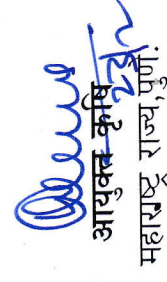 आयुक्त कृषि
महाराष्ट्र राज्य, पुणे.